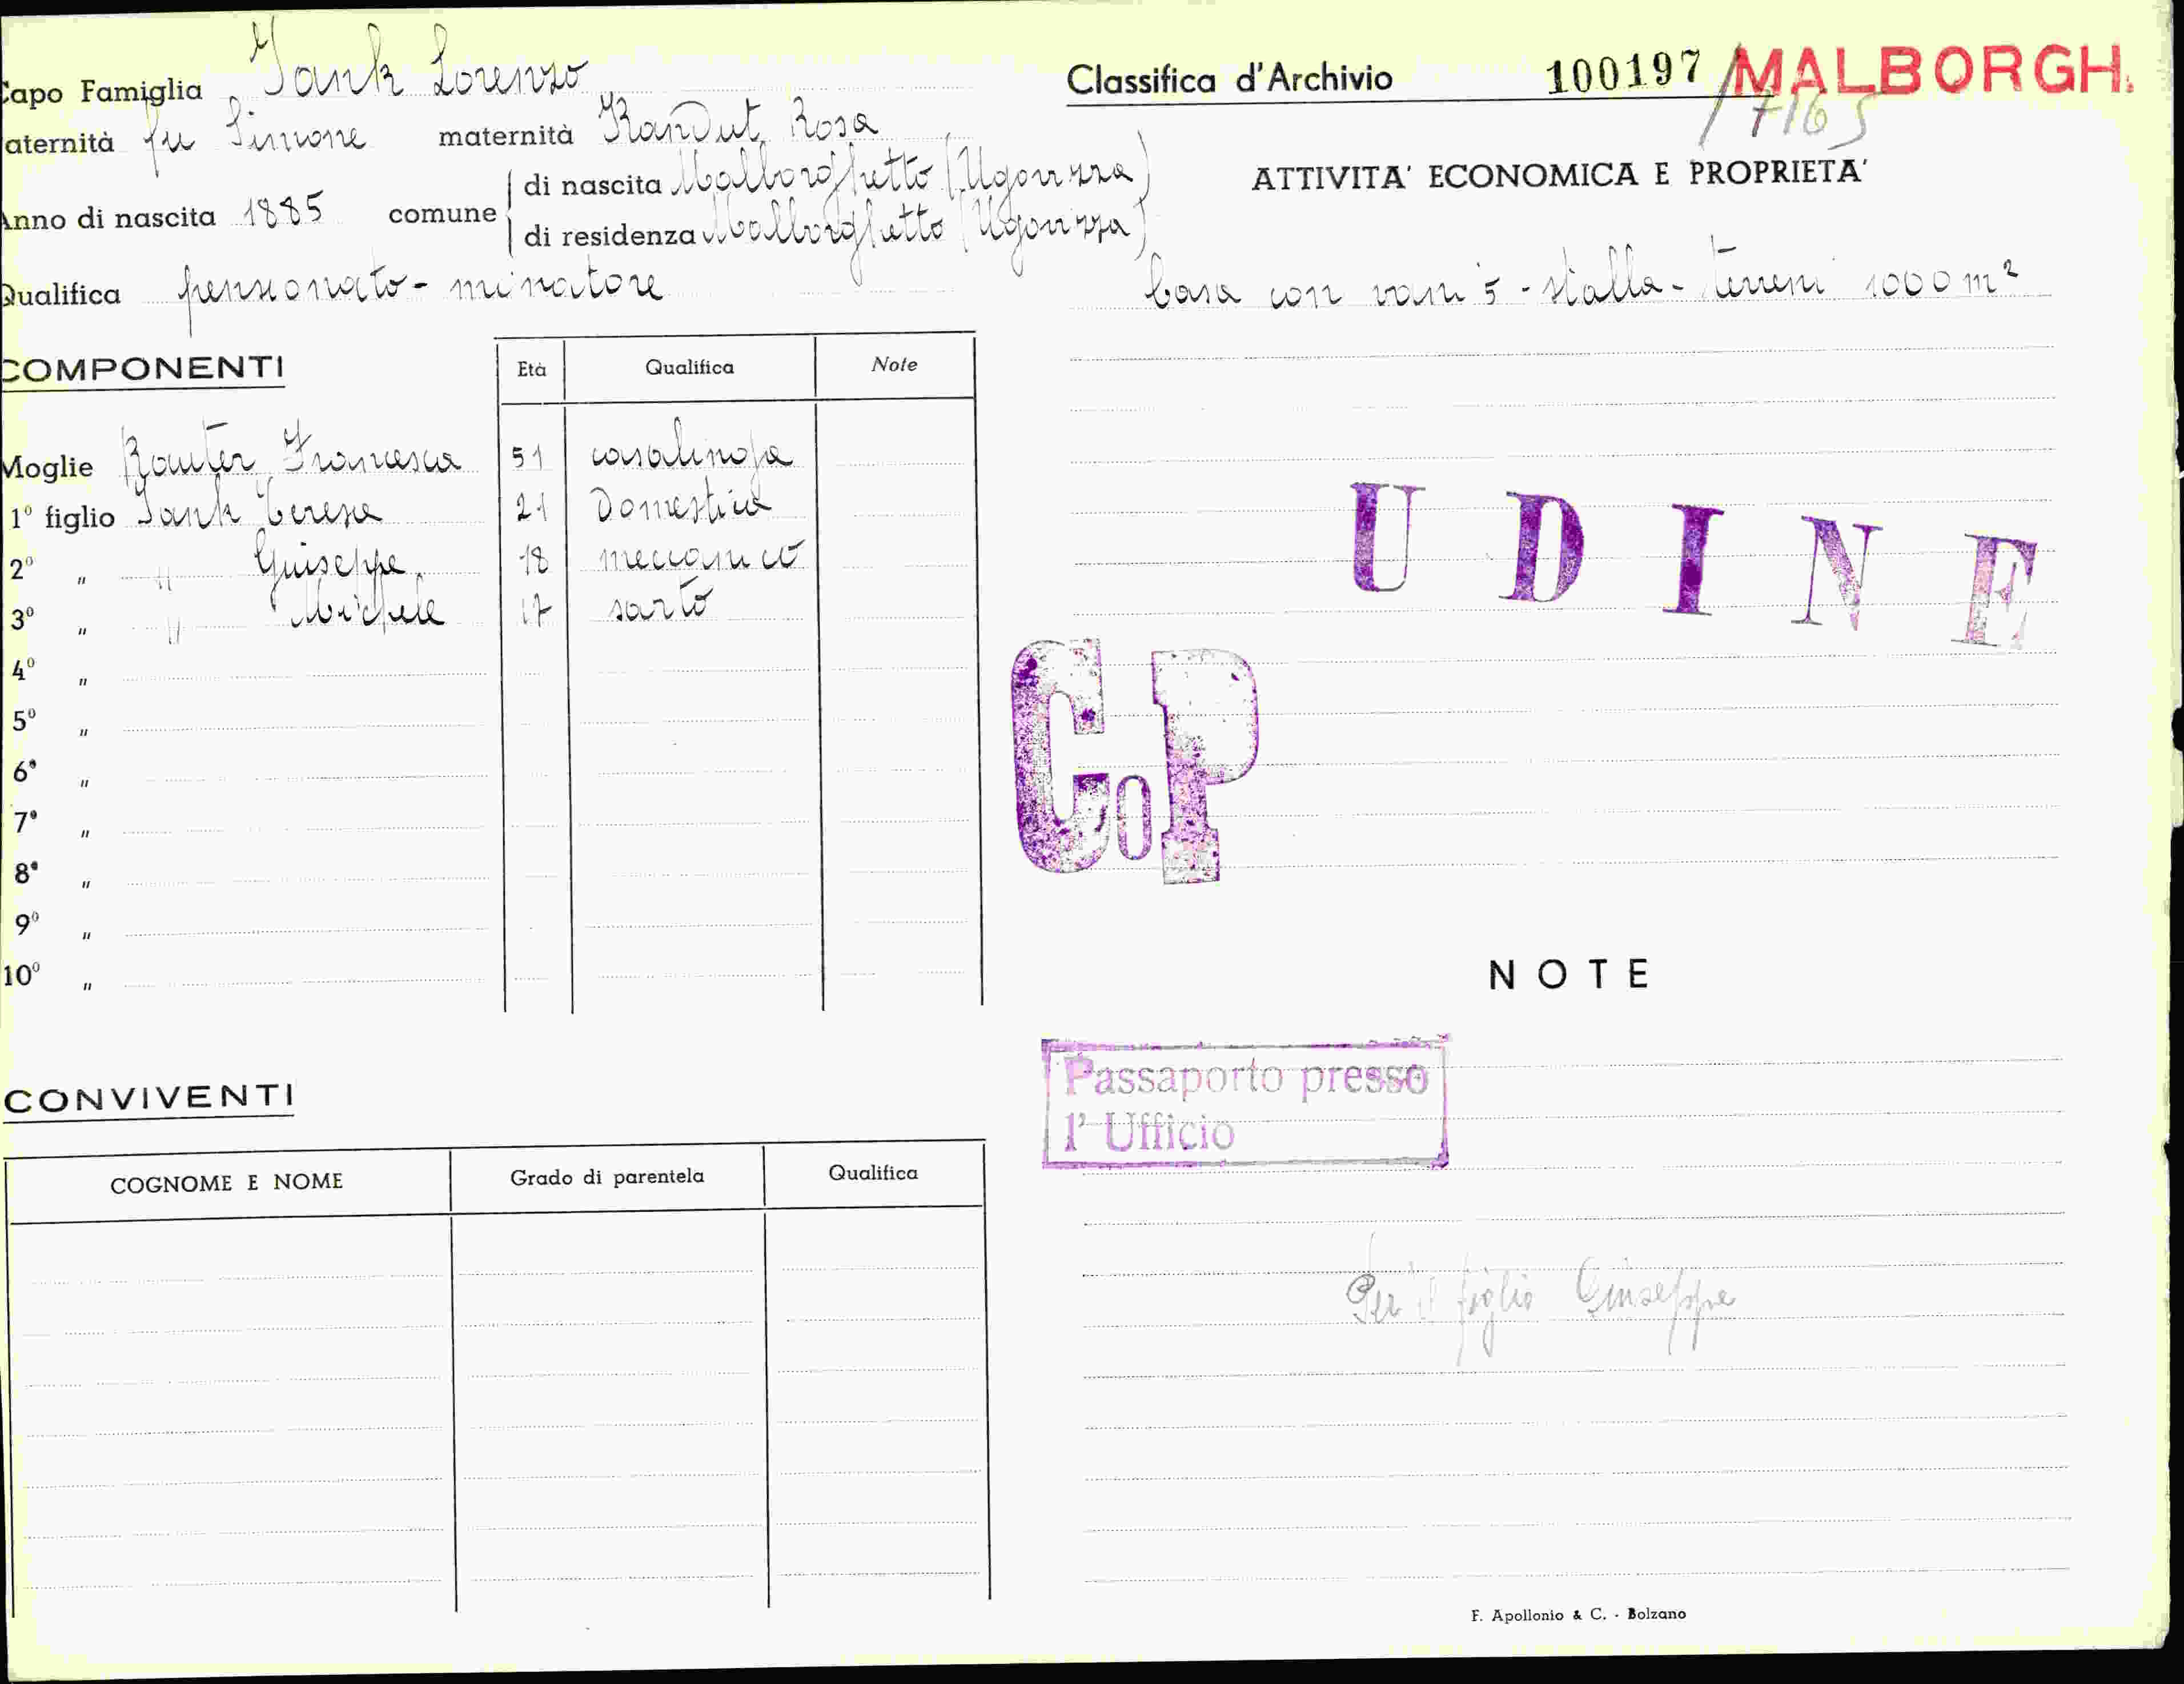 Capo Famiglia Jank Lorenzo
Paternità fu Simone maternità Kandut Rosa
Anno di nascita 1885 comune di nascita Malborghetto (Ugovizza)
di residenza Malborghetto (Ugovizza)
Qualifica pensionato - minatore
COMPONENTI
Età Qualifica Note
Moglie Rauter Francesca 51 casalinga
1º figlio Jank Teresa 21 Domestica
2º " " Guiseppe 18 meccanico
3º " " Michele 17 sarto
4º "
5º "
6º "
7º "
8º "
9º "
10º "
CONVIVENTI
COGNOME E NOME Grado di parentela Qualifica
Classifica d'Archivio 100197 MALBORGH.
/7165
ATTIVITA' ECONOMICA E PROPRIETA'
Casa con vani 5 - stalla - terreni 1000 m²
UDINE
CoP
NOTE
Passaporto presso
l' Ufficio
Per il figlio Giuseppe
F. Apollonio & C. - Bolzano